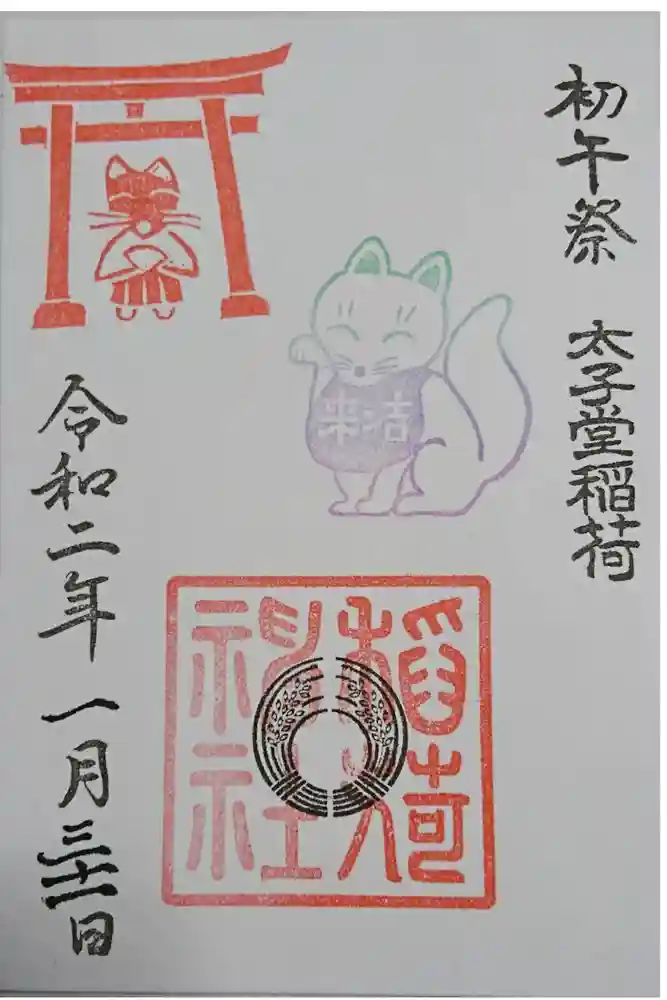 初午祭 太子堂稲荷
稲荷
神社
令和二年 一月三十一日